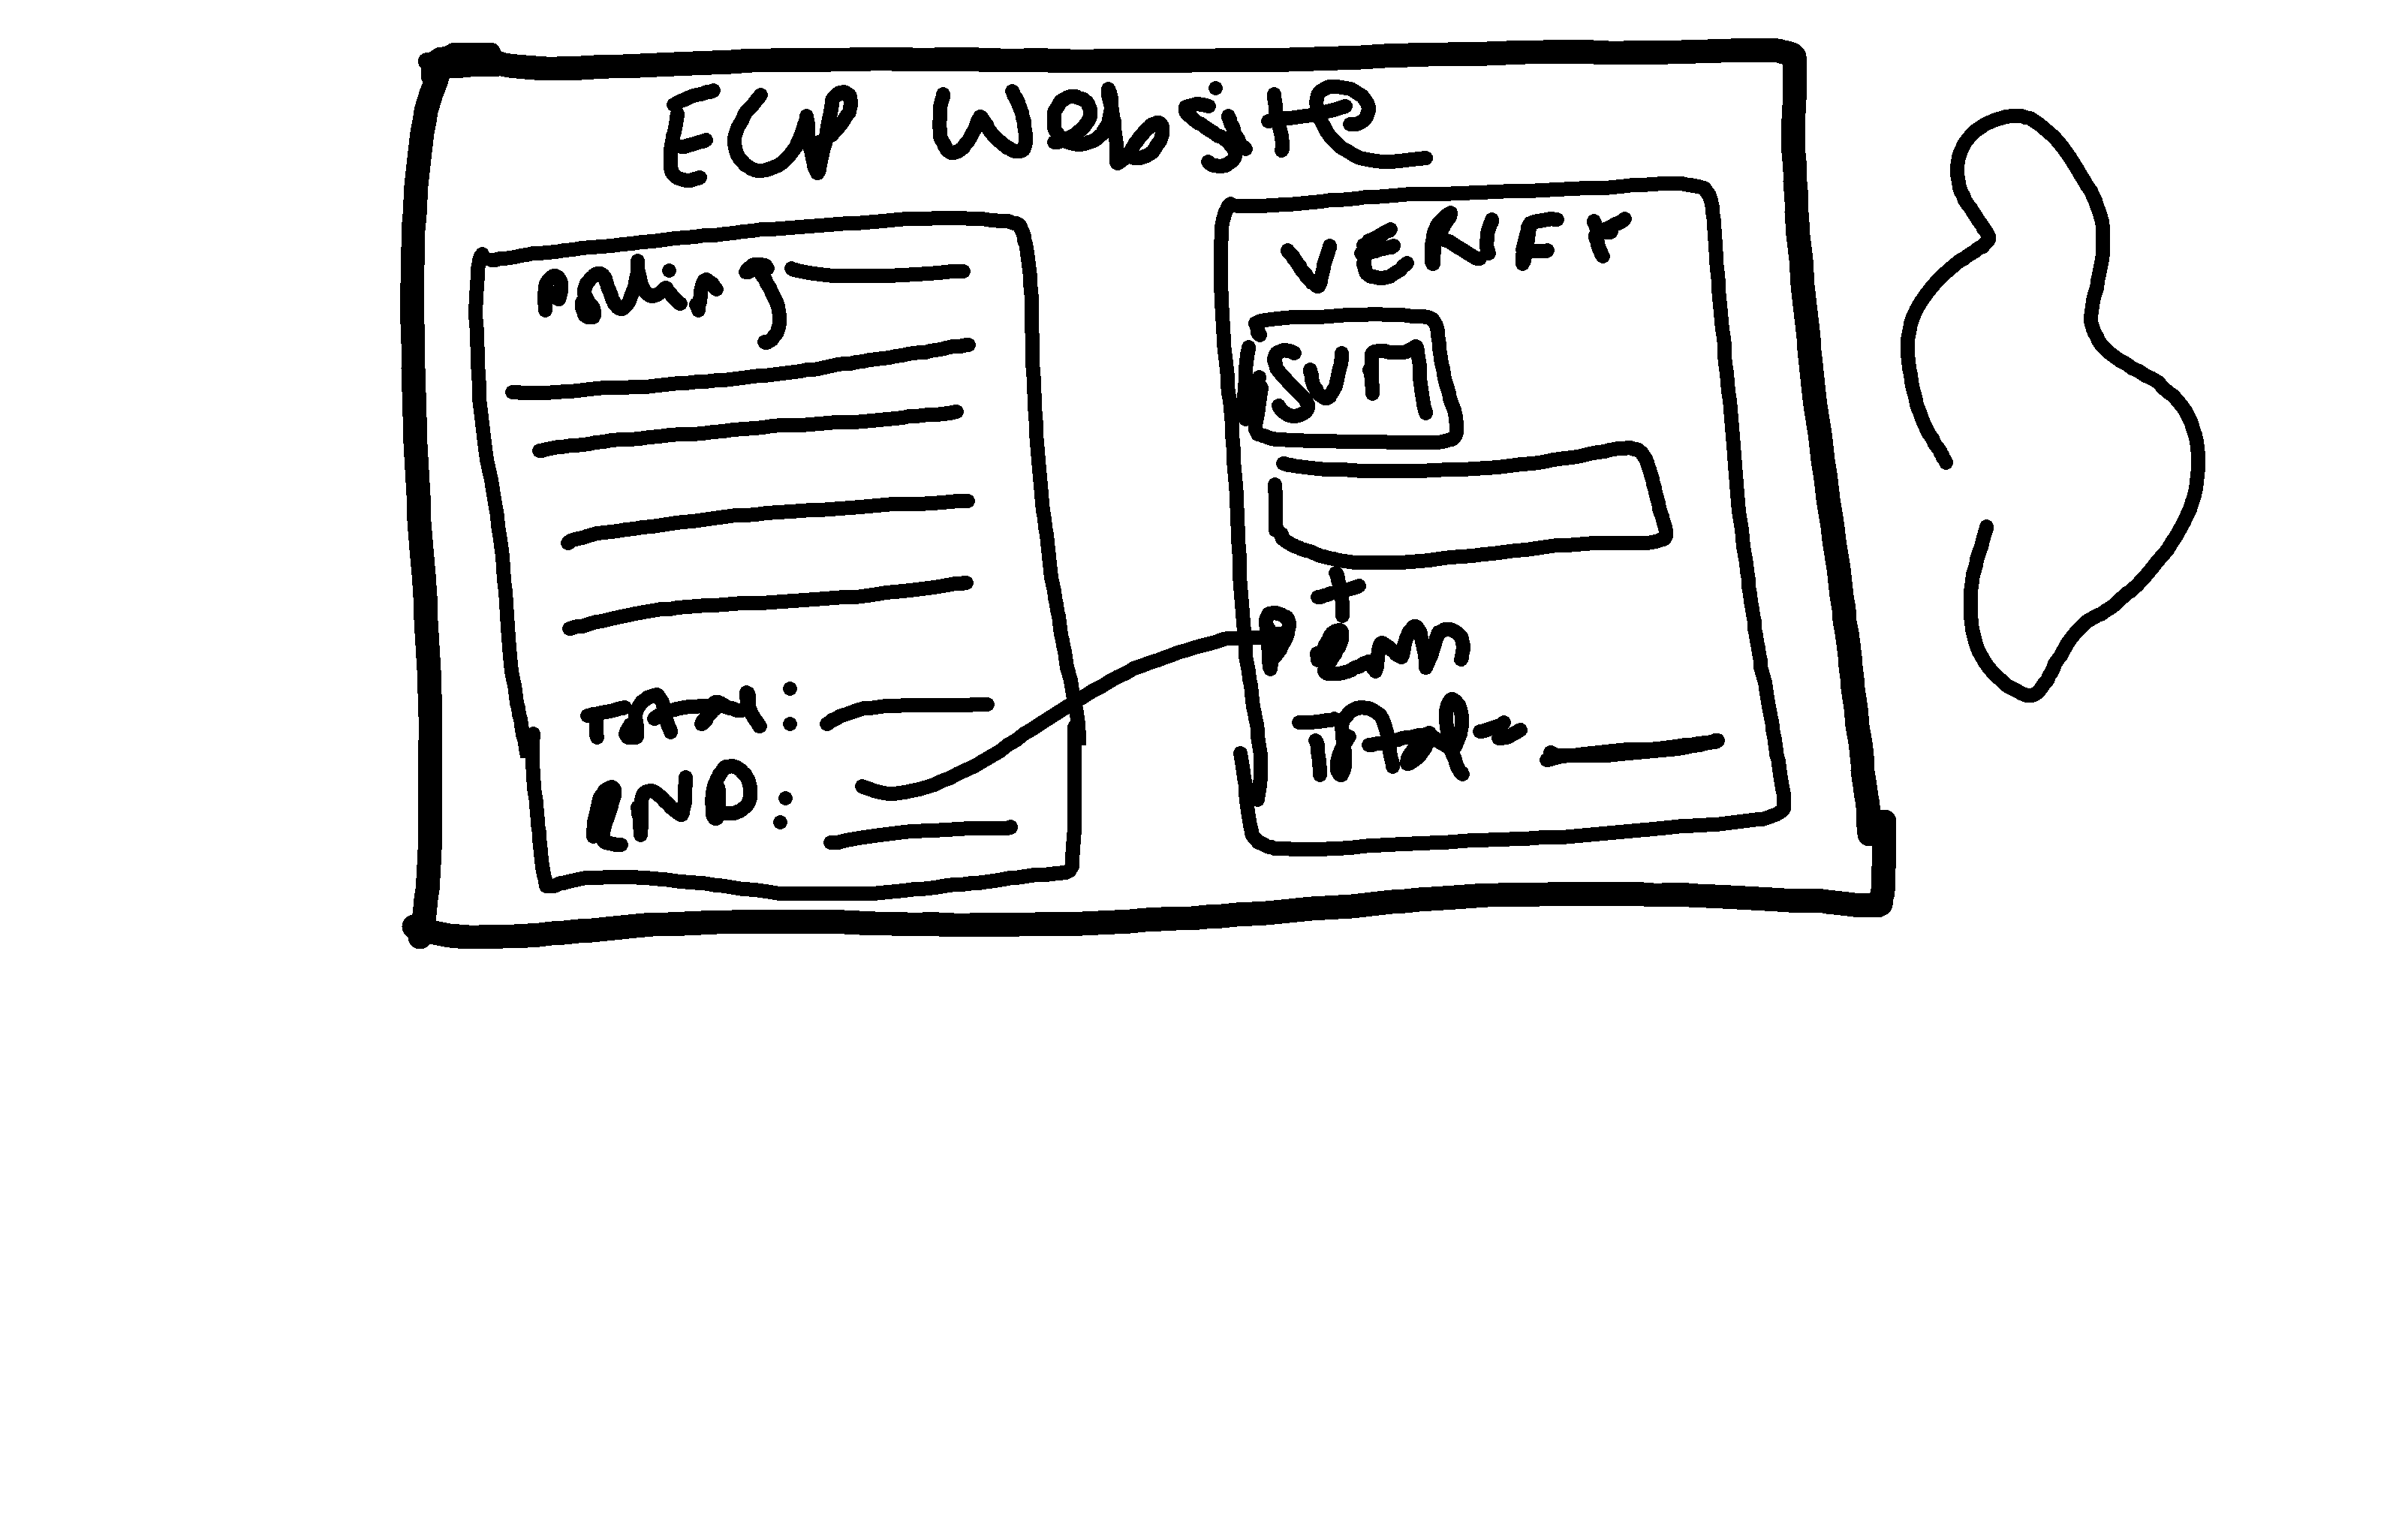 ECP Website
Polling
Total:
END:
VERIFY
SUM
+
Total